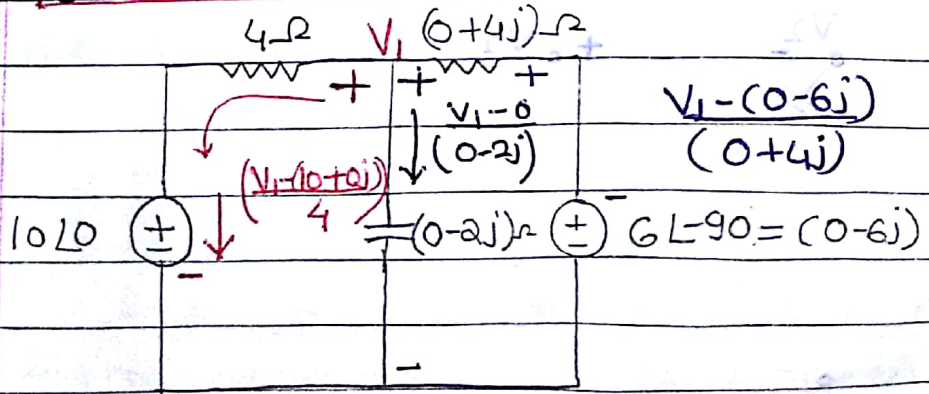 4Ω V₁ (0+4j)Ω
+ + +
V₁-0
(0-2j)
V₁-(0-6j)
(0+4j)
(V₁-(10+0j))
4
10∠0 + - (0-2j)Ω + - - 6∠-90 = (0-6j)
-
-